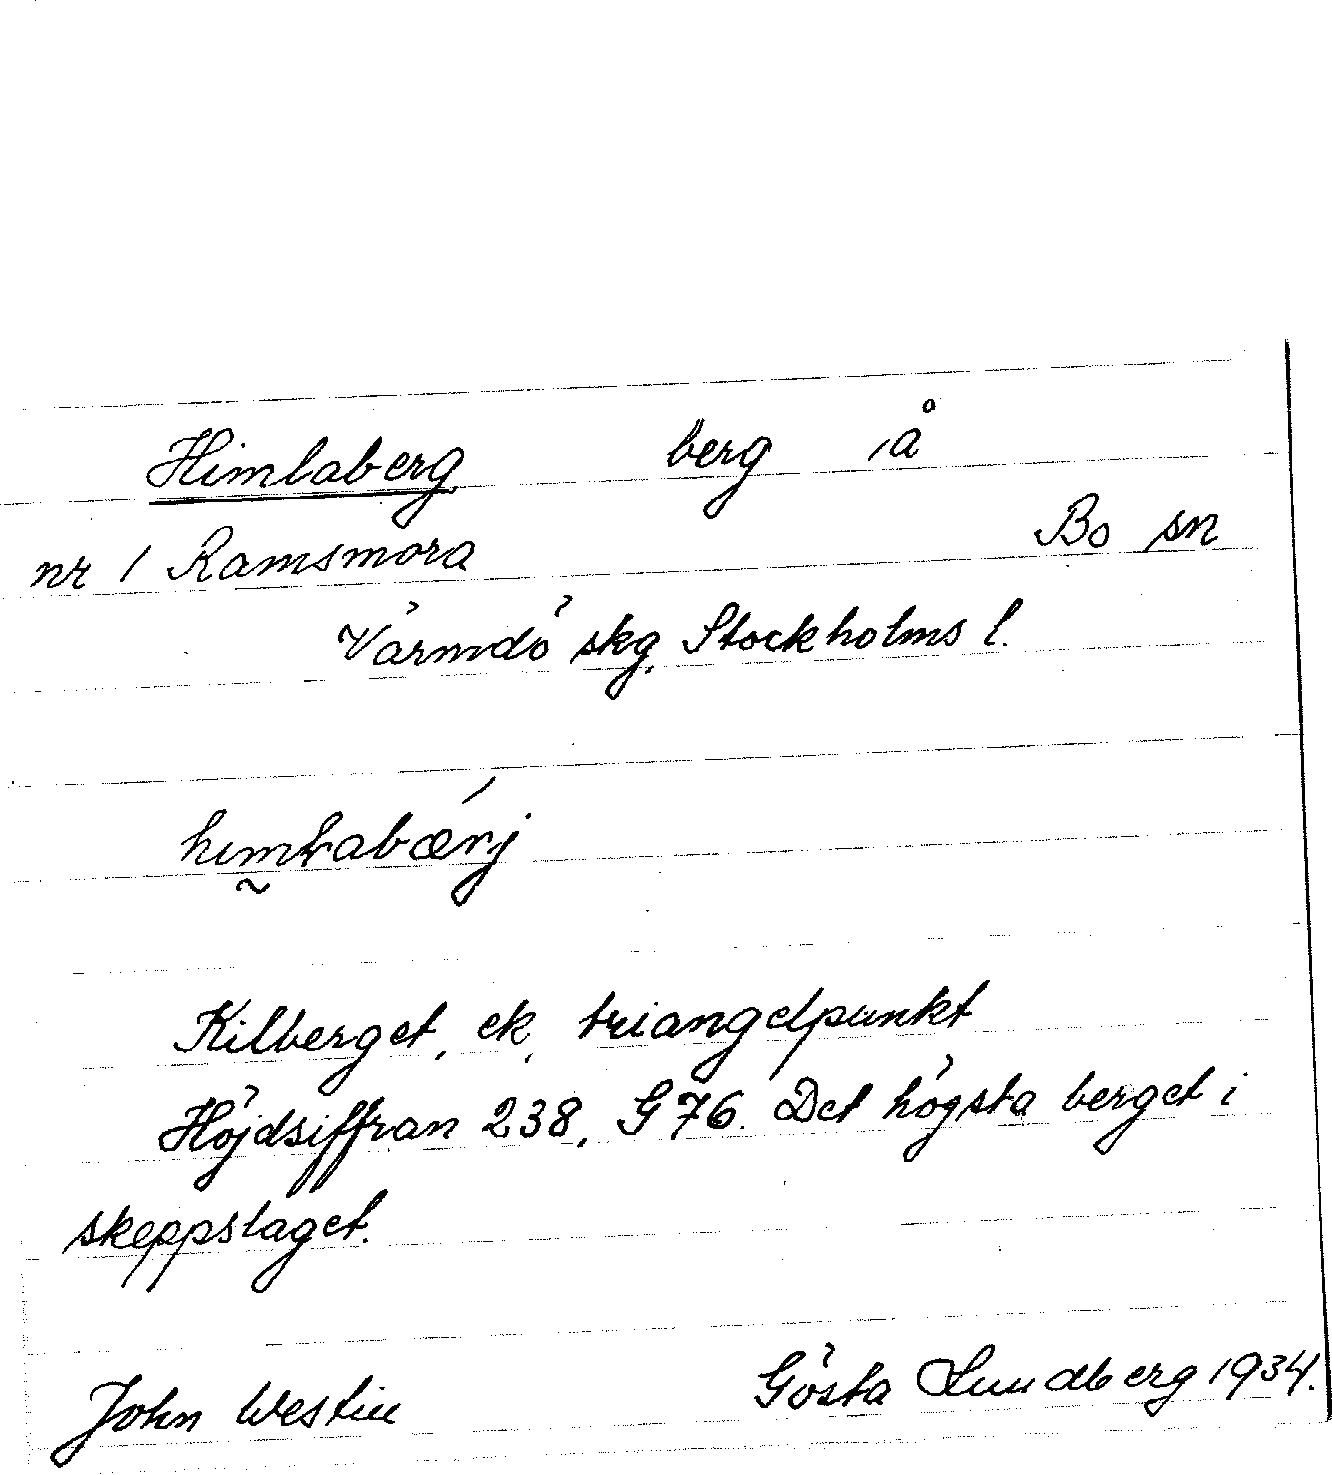 Himlaberg berg å
nr 1 Ramsmora Bo sn
Värmdö skg. Stockholms l.
Kilberget, ek, triangelpunkt
Höjdsiffran 238, G 76. Det högsta berget i
skeppslaget.
John Westin Gösta Lundberg 1934.